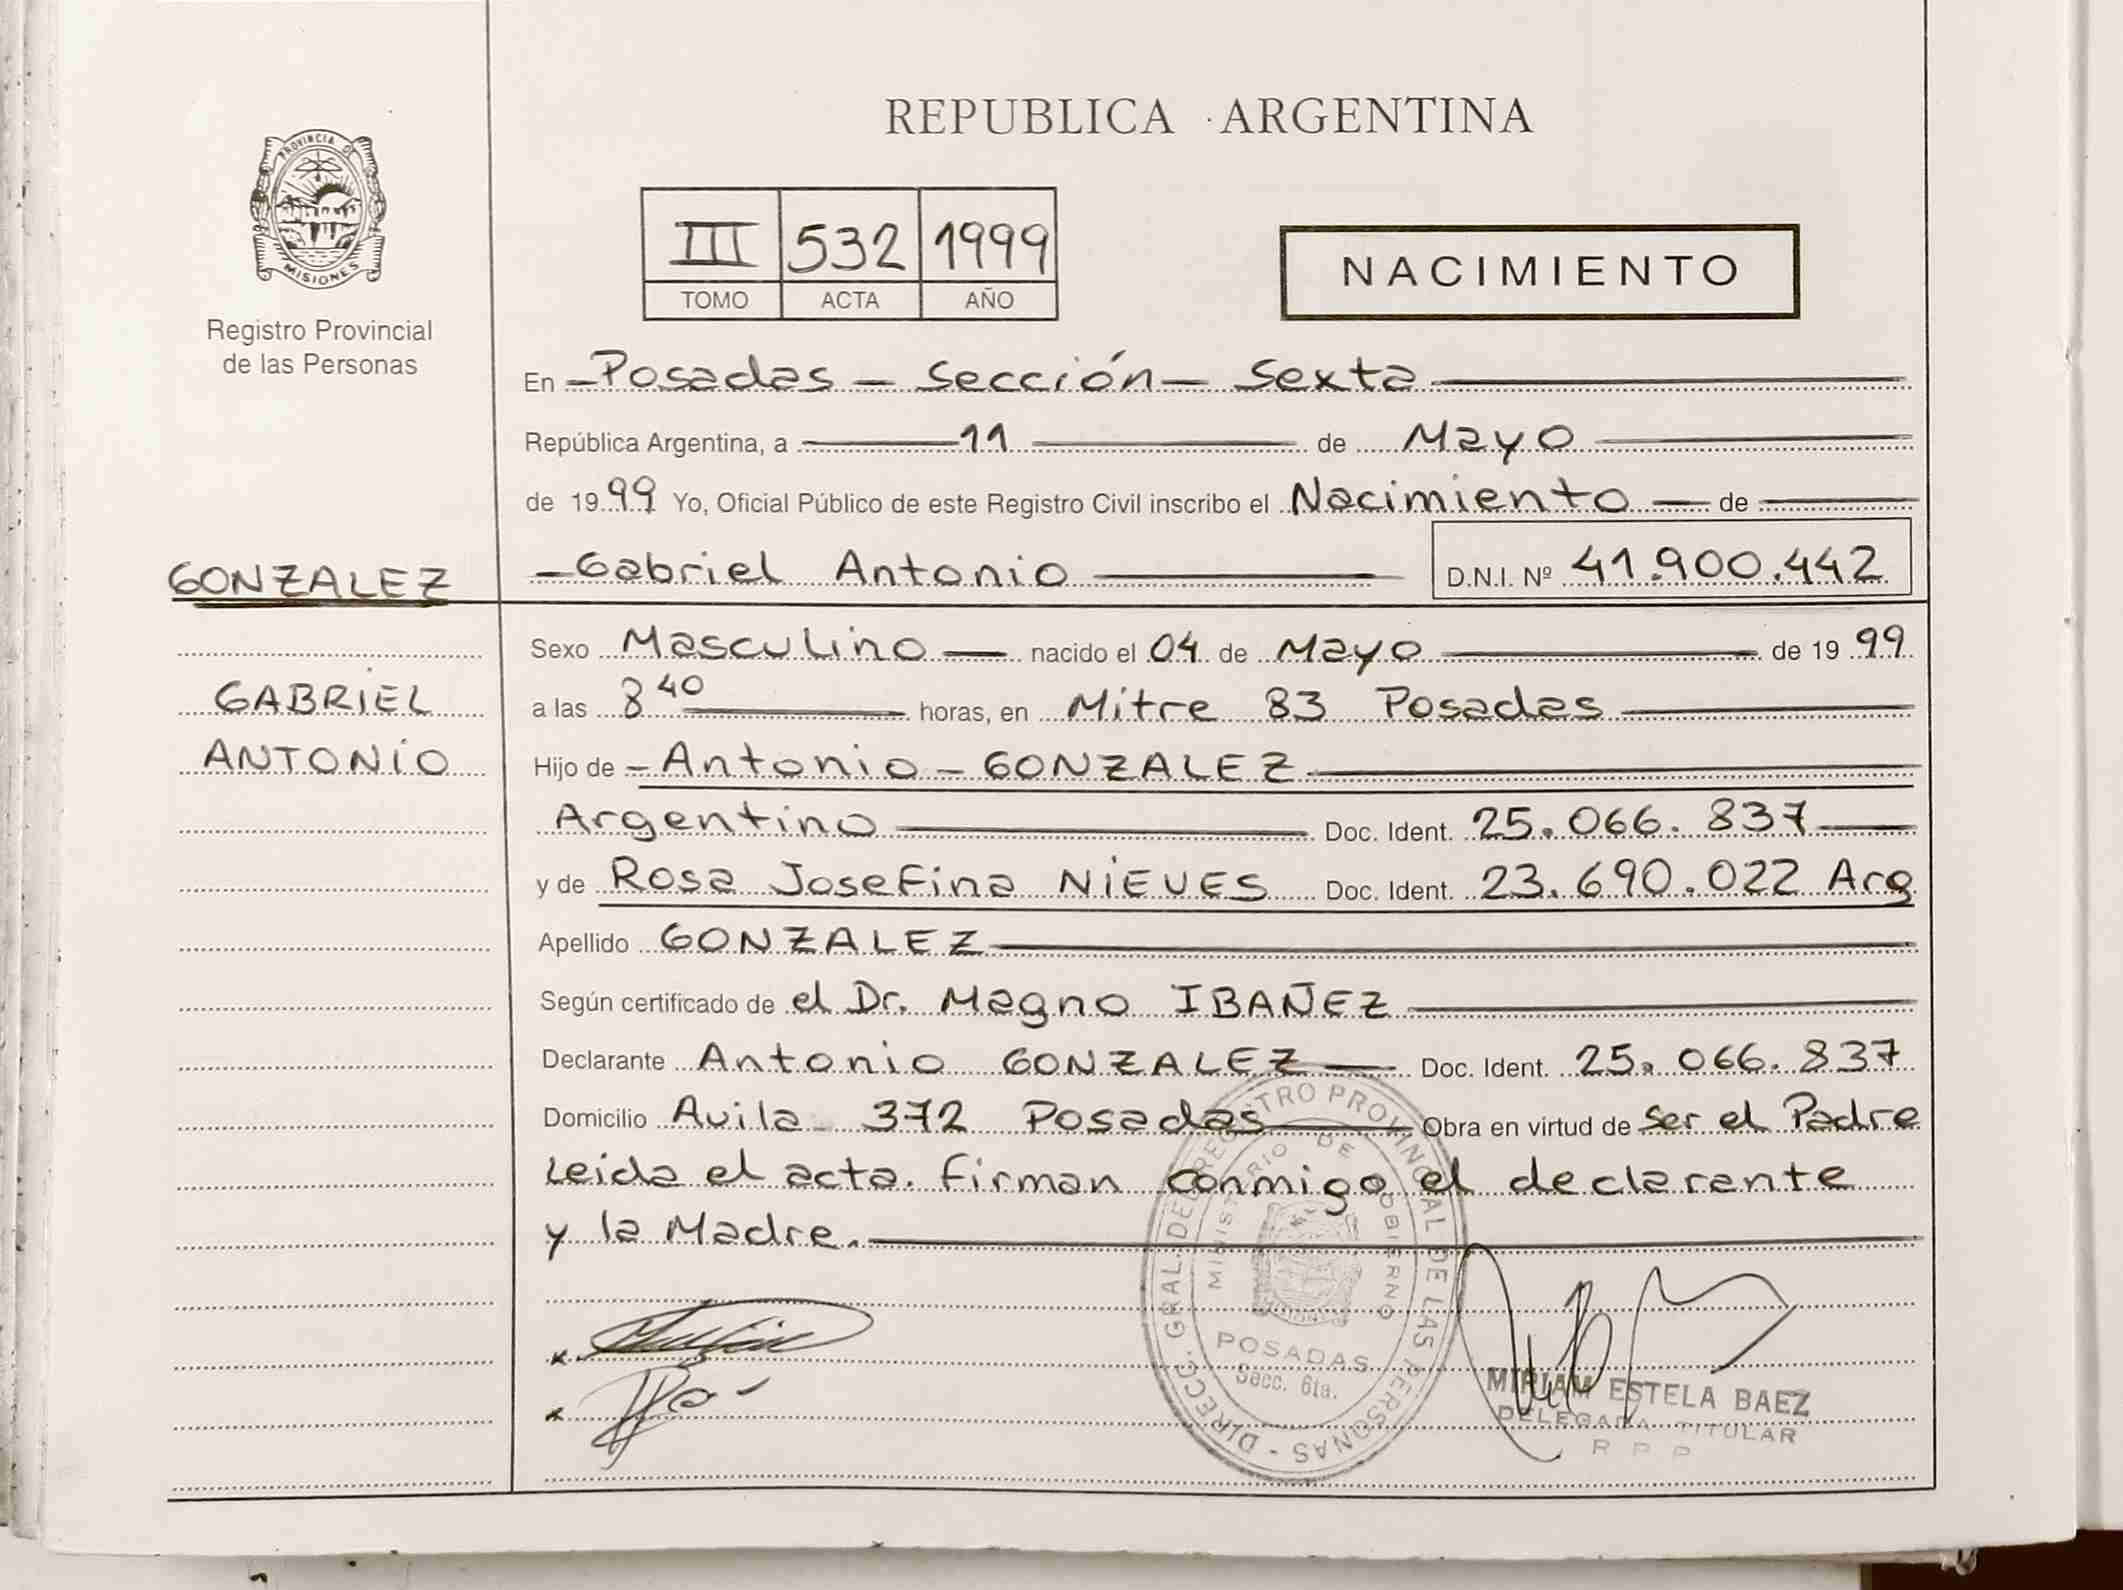 REPUBLICA ARGENTINA
PROVINCIA D
MISIONES
Registro Provincial
de las Personas
III 532 1999
TOMO ACTA AÑO
NACIMIENTO
En Posadas - Sección - Sexta
República Argentina, a 11 de Mayo
de 1999 Yo, Oficial Público de este Registro Civil inscribo el Nacimiento de
GONZALEZ
Gabriel Antonio D.N.I. Nº 41.900.442
Sexo Masculino nacido el 04 de Mayo de 1999
GABRIEL
a las 8 40 horas, en Mitre 83 Posadas
ANTONIO
Hijo de Antonio - GONZALEZ
Argentino Doc. Ident. 25.066.837
y de Rosa Josefina NIEVES Doc. Ident. 23.690.022 Arg
Apellido GONZALEZ
Según certificado de el Dr. Magno IBAÑEZ
Declarante Antonio GONZALEZ Doc. Ident. 25.066.837
Domicilio Avila 372 Posadas Obra en virtud de ser el Padre
Leida el acta. firman conmigo el declarante
y la Madre.
DIRECC. GRAL. DE REGISTRO PROVINCIAL DE LAS PERSONAS
MINISTERIO DE GOBIERNO
POSADAS
Secc. 6ta.
MIRIAM ESTELA BAEZ
DELEGADA TITULAR
R P P